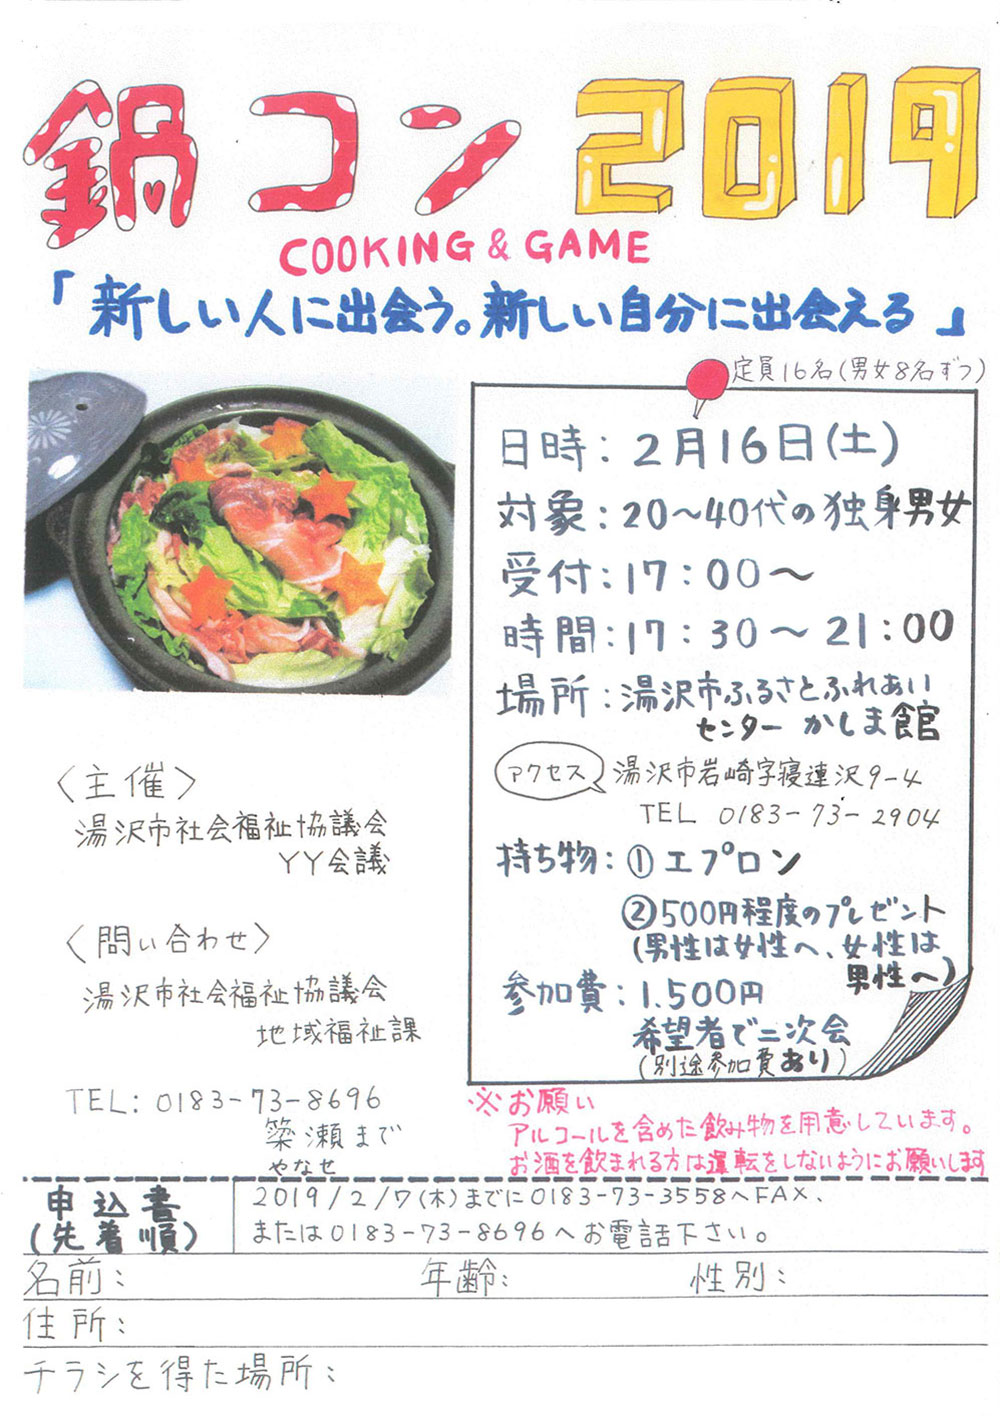 鍋コン 2019
COOKING & GAME
「新しい人に出会う。新しい自分に出会える」
定員16名(男女8名ずつ)
日時:2月16日(土)
対象:20〜40代の独身男女
受付:17:00〜
時間:17:30〜21:00
場所:湯沢市ふるさとふれあい
センター かしま食官
アクセス 湯沢市岩崎字寝連沢9-4
TEL 0183-73-2904
持ち物:①エプロン
②500円程度のプレゼント
(男性は女性へ、女性は
男性へ)
参加費:1.500円
希望者で二次会
(別途参加費あり)
〈主催〉
湯沢市社会福祉協議会
YY会議
〈問い合わせ〉
湯沢市社会福祉協議会
地域福祉課
TEL:0183-73-8696
簗瀬まで
やなせ
※お願い
アルコールを含めた飲み物を用意しています。
お酒を飲まれる方は運転をしないようにお願いします
申込書
(先着順)
2019/2/7(木)までに0183-73-3558へFAX、
または0183-73-8696へお電話下さい。
名前: 年齢: 性別:
住所:
チラシを得た場所: